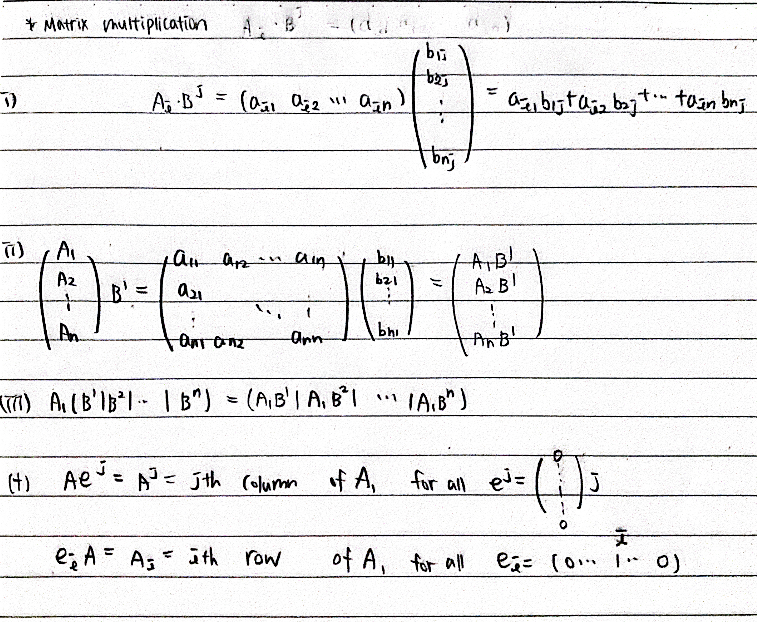 * Matrix multiplication A_i · B^j = (a_i1 a_in)
i) A_i · B^j = (a_i1 a_i2 ··· a_in) (b_1j b_2j ⋮ b_nj) = a_i1 b_1j + a_i2 b_2j + ··· + a_in b_nj
ii) (A_1 A_2 ⋮ A_n) B^1 = (a_11 a_12 ··· a_1n a_21 ⋱ ⋮ a_n1 a_n2 a_nn) (b_11 b_21 ⋮ b_n1) = (A_1 B^1 A_2 B^1 ⋮ A_n B^1)
iii) A_1 (B^1 | B^2 | ·· | B^n) = (A_1 B^1 | A_1 B^2 | ··· | A_1 B^n)
(+) A e^j = A^j = jth column of A, for all e^j = (0 ⋮ 0) j
e_i A = A_i = ith row of A, for all e_i = (0 ··· 1 ·· 0) i